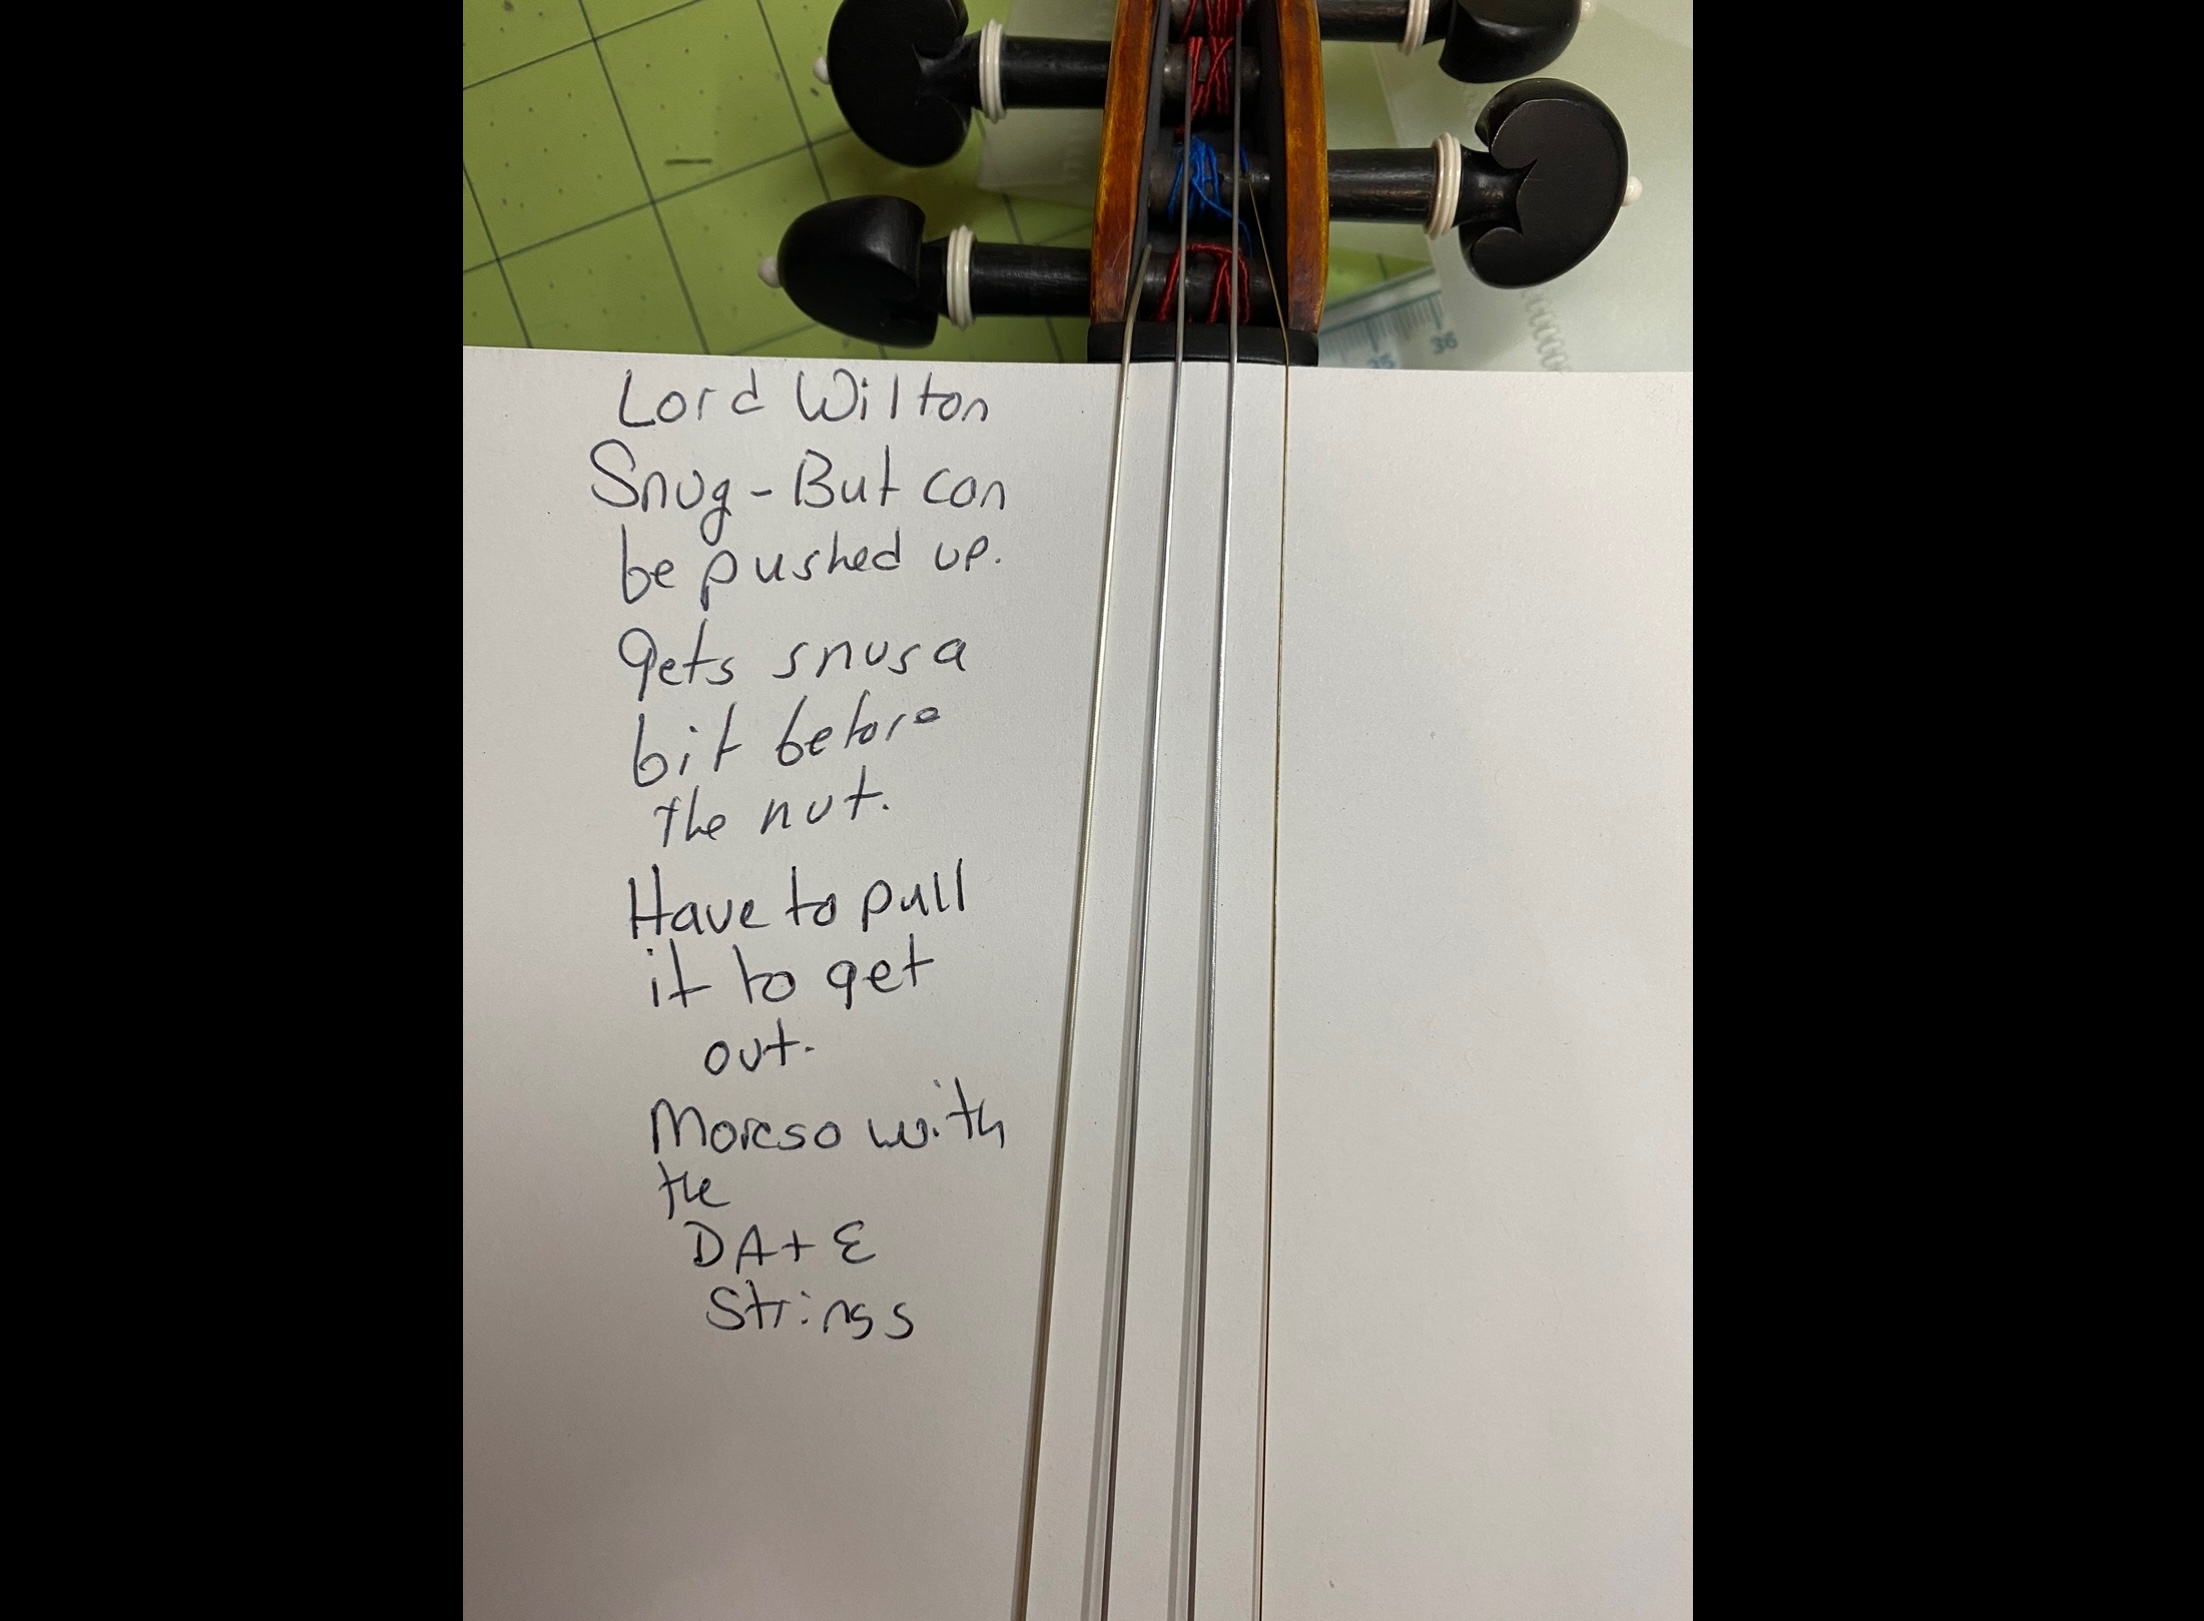 35 36
Lord Wilton
Snug - But can
be pushed up.
gets snug a
bit before
the nut.
Have to pull
it to get
out.
Moreso with
the
D A + E
Strings